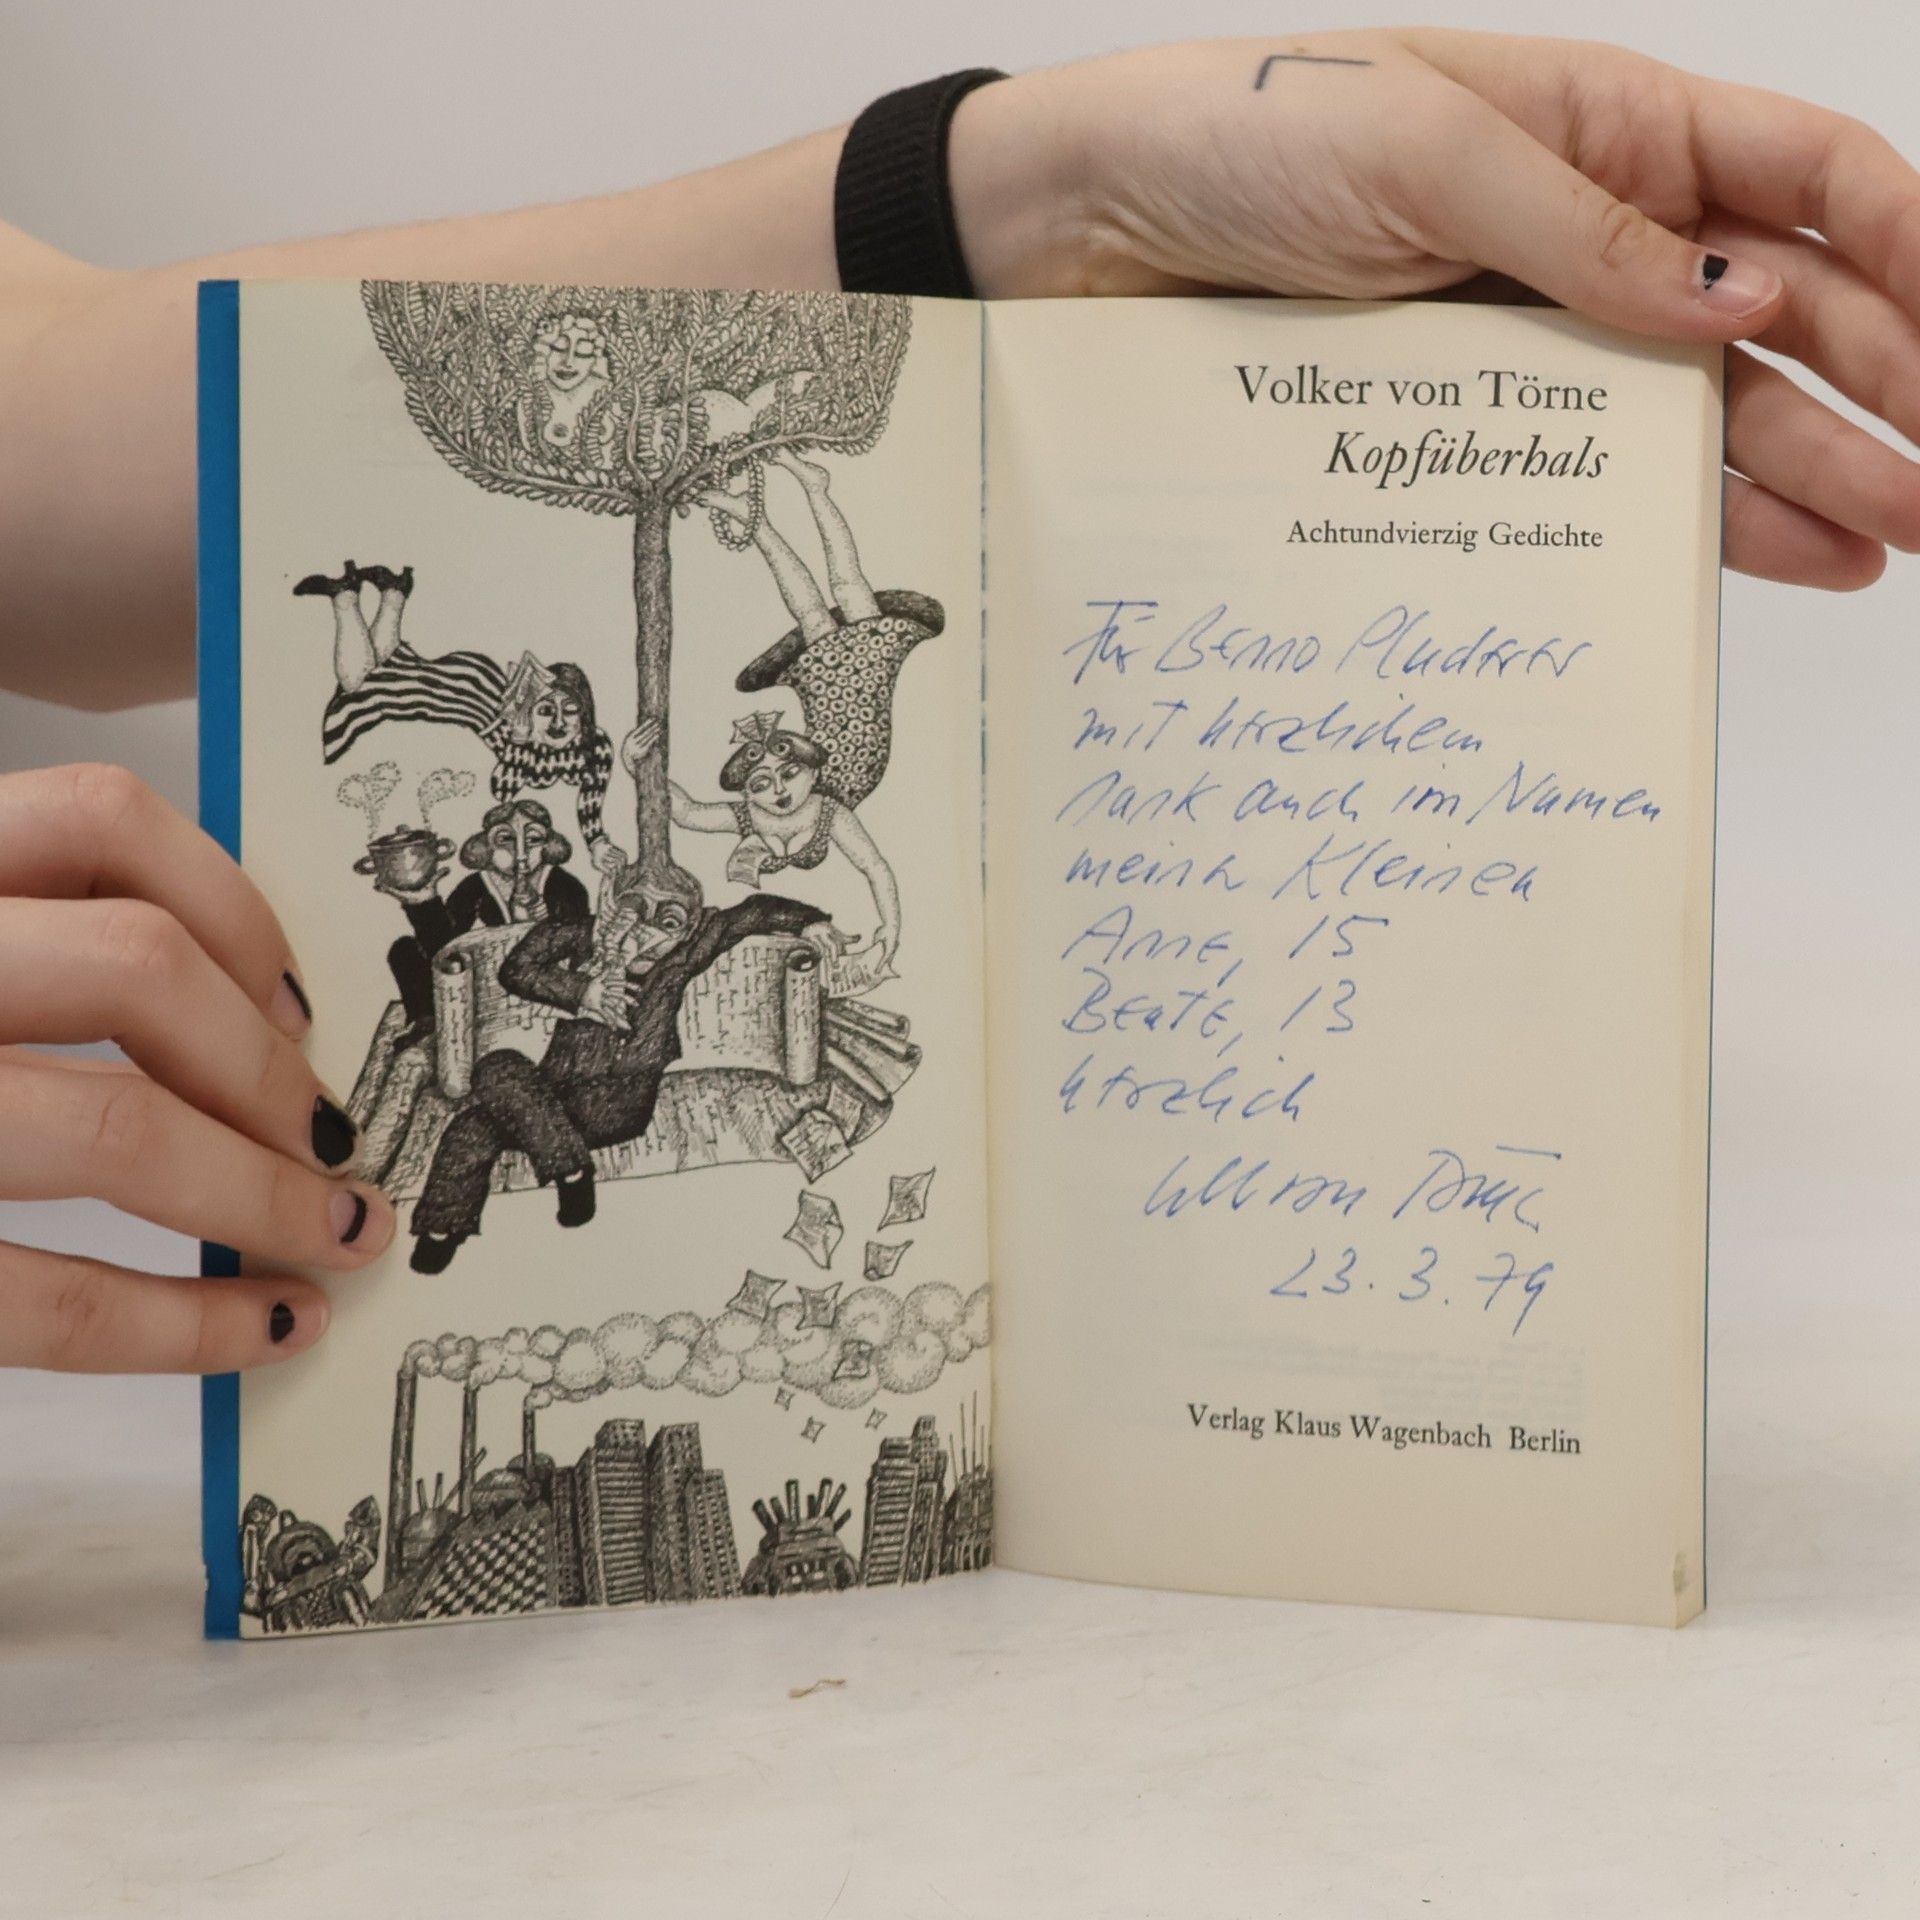 Volker von Törne
Kopfüberhals
Achtundvierzig Gedichte
Für Benno Pluderer
mit herzlichem
Dank auch im Namen
meiner Kleinen
Anne, 15
Beate, 13
herzlich
von Törne
23.3.79
Verlag Klaus Wagenbach Berlin